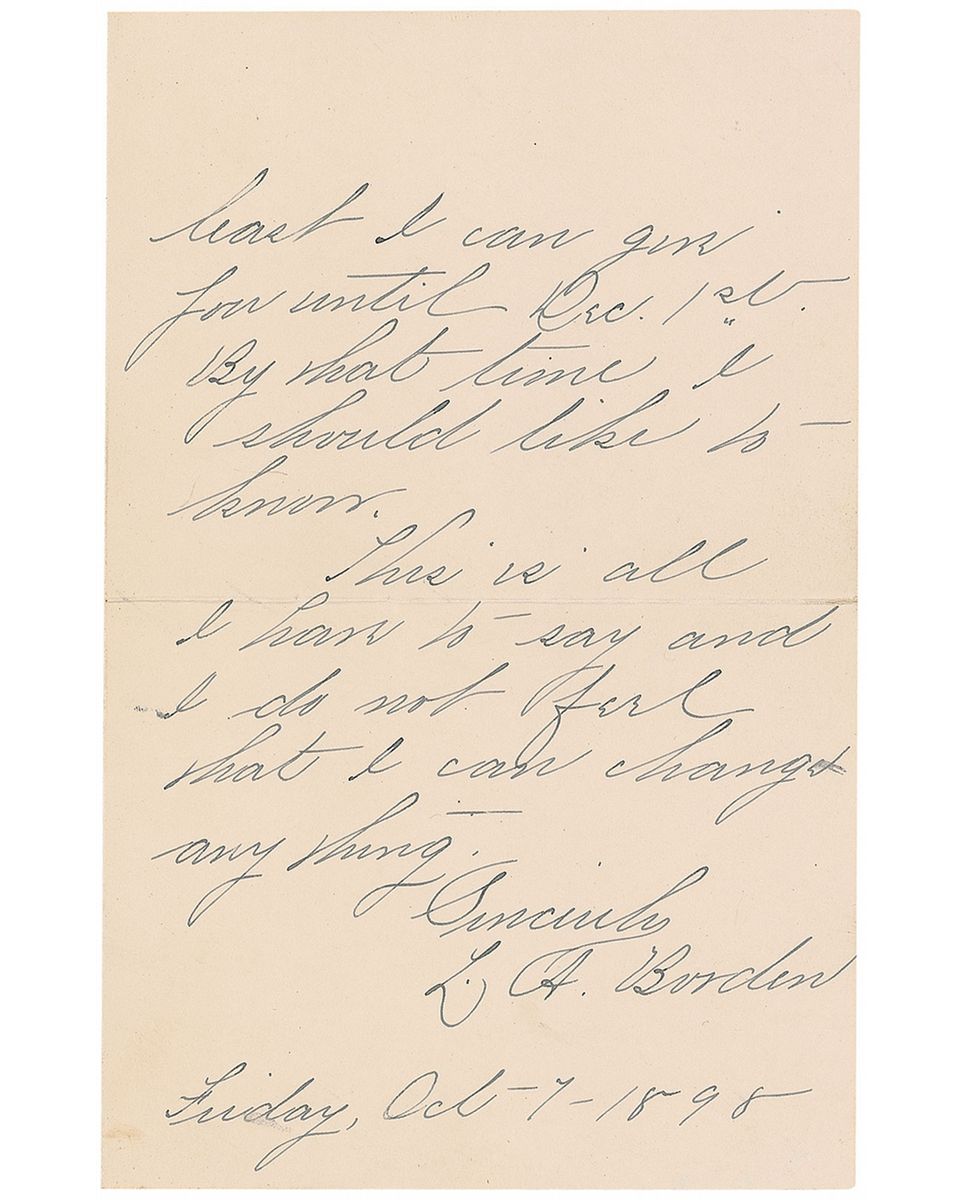 least I can give
you until Dec. 1st.
By that time I
should like to
know.
This is all
I have to say and
I do not feel
that I can change
any thing.
Sincerely
L. A. Borden
Friday, Oct-7-1898